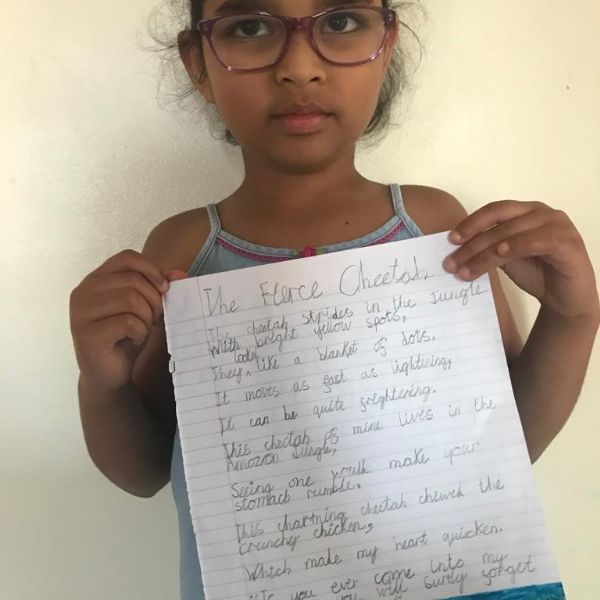 The Fierce Cheetah
This cheetah strides in the Jungle
With bright yellow spots,
They look like a blanket of dots.
It moves as fast as lightning,
It can be quite frightening.
This cheetah of mine lives in the
Amazon Jungle,
Seeing one would make your
stomach rumble.
This charming cheetah chewed the
crunchy chicken,
Which made my heart quicken.
If you ever come into my
you will surely forget